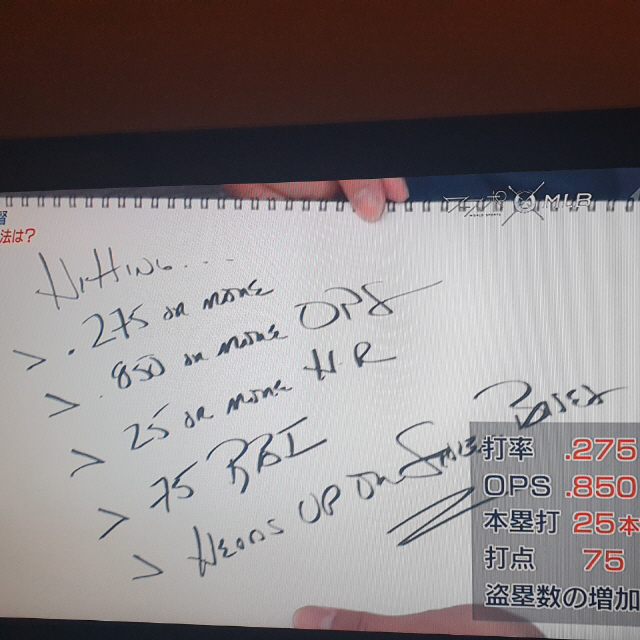 督
法は?
MLB
HITTING...
> .275 OR MORE
> .850 OR MORE OPS
> 25 OR MORE H.R
> 75 RBI
> HEADS UP ON BASES
打率 .275
OPS .850
本塁打 25本
打点 75
盗塁数の増加